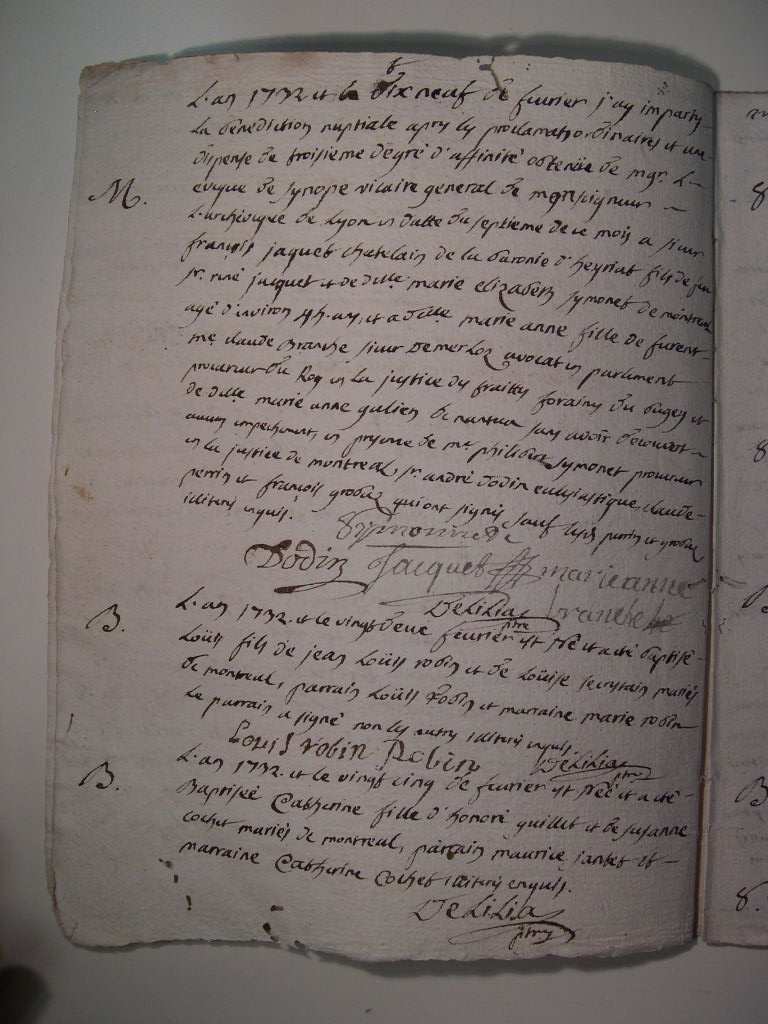 L'an 1732 et le dix neuf de feurier j'ay imparty
La bénediction nuptiale apres les proclamats ordinaires et une
dispense de troisieme degré d'affinité obtenüe de mgr. L
evêque de synope vicaire general de mgr
L'archevêque de Lyon en datte du septieme de ce mois a sieur
françois jaquet chatelain de la baronie d'heyriat fils de feu
sr. rené jacquet et de dlle marie elizabeth symonet de montreal
agé d'environ ans, et a dlle marie anne fille de
me claude branche sieur Demerloz avocat en parlement
procureur du Roy en la justice des traittes foraines du bugey et
de dlle marie anne gulien de nantua sans avoir decouvert
aucun empechement, en presence de me philibert symonet procureur
en la justice de montreal, sr. andré dodin ecclesiastique, claude
perrin et françois grobaz qui ont signés sauf lesd perrin et grobaz
illiterés enquis.
M.
Dodin Jacquet marieanne
Delilia branche
B.
L'an 1732. et le vingt deux feurier est née et a eté baptisé
Loüis fils de jean Loüis robin et de Loüise secrétain mariés
de montreal, parrain Loüis Robin et marraine marie robin
Le parrain a signé non les autres illiterés enquis.
Louis robin Robin Delilia
B.
L'an 1732. et le vingt cinq de feurier est née et a eté
Baptisée Catherine fille d'honoré guillet et de susanne
cochet mariés de montreal, parrain maurice jantet et
marraine Catherine Cochet illiterés enquis.
Delilia